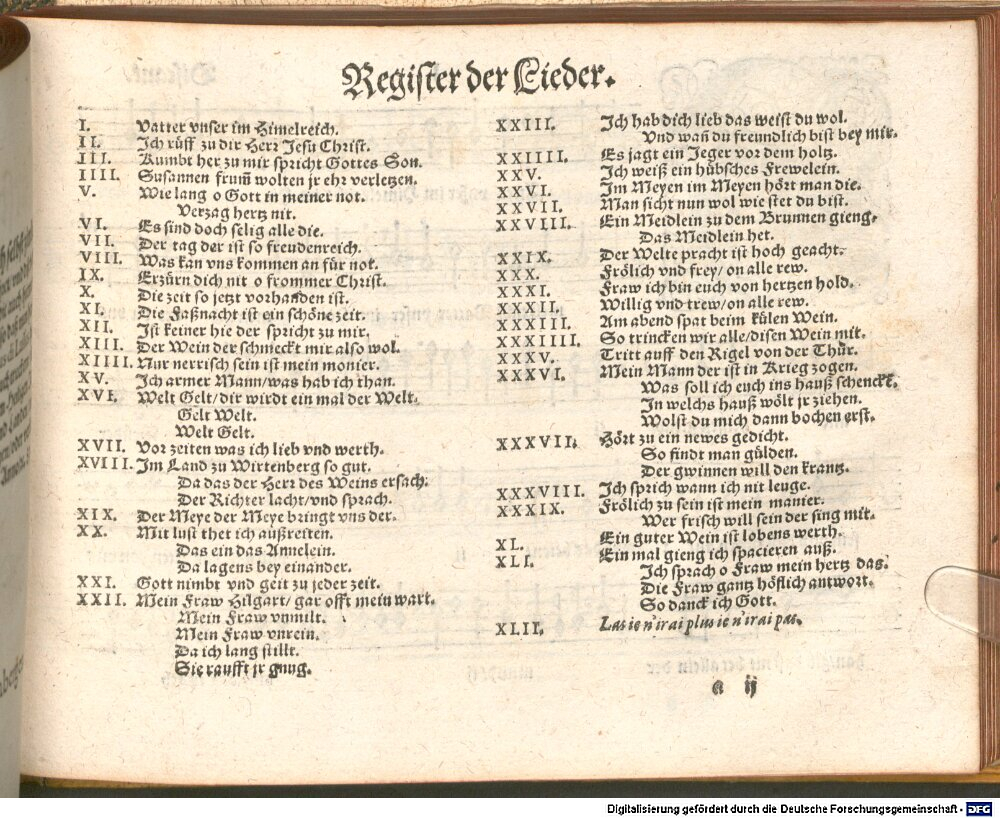 Register der Lieder.
I. Vatter vnser im Himelreich.
II. Ich rüff zu dir Herr Jesu Christ.
III. Kumbt her zu mir spricht Gottes Son.
IIII. Susannen frum̄ wolten jr ehr verletzen.
V. Wie lang o Gott in meiner not.
Verzag hertz nit.
VI. Es sind doch selig alle die.
VII. Der tag der ist so freudenreich.
VIII. Was kan vns kommen an für not.
IX. Erzürn dich nit o frommer Christ.
X. Die zeit so jetzt vorhanden ist.
XI. Die Faßnacht ist ein schöne zeit.
XII. Ist keiner hie der spricht zu mir.
XIII. Der Wein der schmeckt mir also wol.
XIIII. Nur nerrisch sein ist mein monier.
XV. Ich armer Mann/was hab ich than.
XVI. Welt Gelt/dir wirdt ein mal der Welt.
Gelt Welt.
Welt Gelt.
XVII. Vor zeiten was ich lieb vnd werth.
XVIII. Im Land zu Wirtenberg so gut.
Da das der Herr des Weins ersach.
Der Richter lacht/vnd sprach.
XIX. Der Meye der Meye bringt vns der.
XX. Mit lust thet ich außreiten.
Das ein das Annelein.
Da lagens bey einander.
XXI. Gott nimbt vnd geit zu jeder zeit.
XXII. Mein Fraw Hilgart/gar offt mein wart.
Mein Fraw vnmilt.
Mein Fraw vnrein.
Da ich lang stillt.
Sie raufft jr gnug.
XXIII. Ich hab dich lieb das weist du wol.
Vnd wan̄ du freundlich bist bey mir.
XXIIII. Es jagt ein Jeger vor dem holtz.
XXV. Ich weiß ein hübsches Frewelein.
XXVI. Im Meyen im Meyen hört man die.
XXVII. Man sicht nun wol wie stet du bist.
XXVIII. Ein Meidlein zu dem Brunnen gieng.
Das Meidlein het.
XXIX. Der Welte pracht ist hoch geacht.
XXX. Frölich vnd frey/on alle rew.
XXXI. Fraw ich bin euch von hertzen hold.
XXXII. Willig vnd trew/on alle rew.
XXXIII. Am abend spat beim külen Wein.
XXXIIII. So trincken wir alle/disen Wein mit.
XXXV. Tritt auff den Rigel von der Thür.
XXXVI. Mein Mann der ist in Krieg zogen.
Was soll ich euch ins hauß schenckt.
In welchs hauß wölt jr ziehen.
Wolst du mich dann bochen erst.
XXXVII. Hört zu ein newes gedicht.
So findt man gülden.
Der gwinnen will den krantz.
XXXVIII. Ich sprich wann ich nit leuge.
XXXIX. Frölich zu sein ist mein manier.
Wer frisch will sein der sing mit.
XL. Ein guter Wein ist lobens werth.
XLI. Ein mal gieng ich spacieren auß.
Ich sprach o Fraw mein hertz das.
Die Fraw gantz höflich antwort.
So danck ich Gott.
XLII. Las ie n'irai plus ie n'irai pas.
a ij
Digitalisierung gefördert durch die Deutsche Forschungsgemeinschaft - DFG